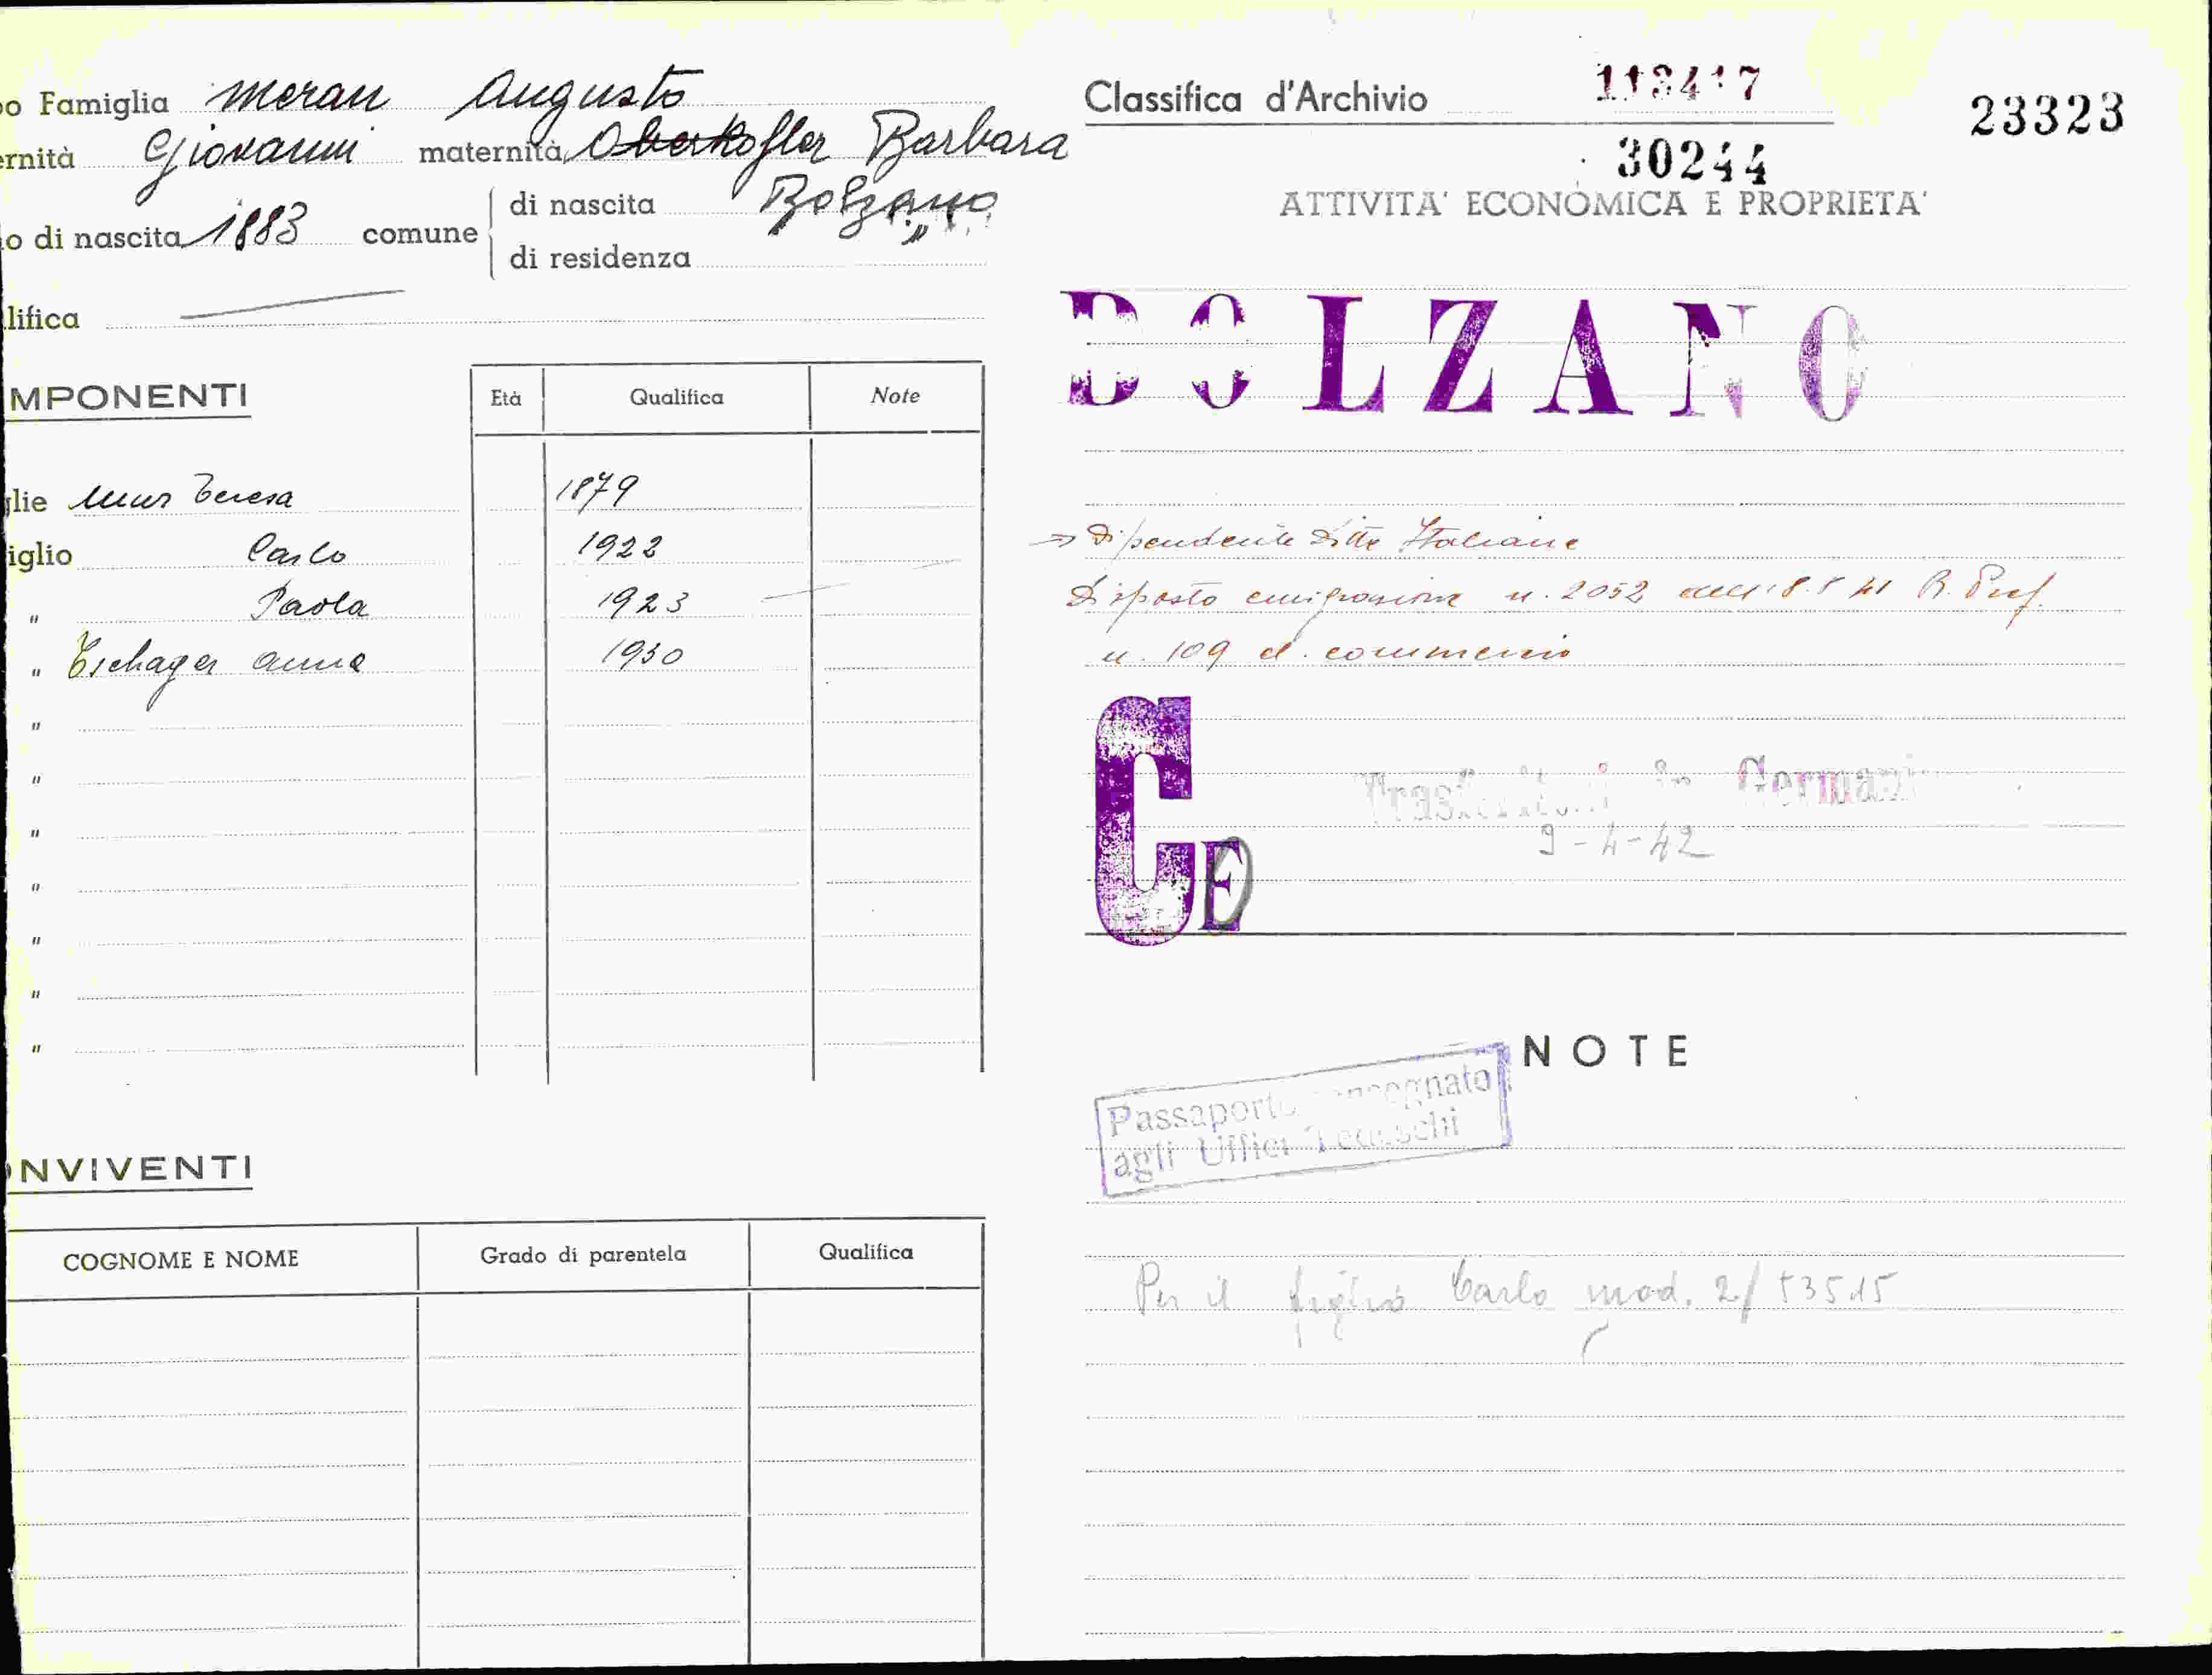 o Famiglia Meran Augusto
ernità Giovanni maternità Oberkofler Barbara
o di nascita 1883 comune di nascita Bolzano
di residenza "
lifica
MPONENTI
Età Qualifica Note
lie Mur Teresa 1879
iglio Carlo 1922
" Paola 1923
" Tschager Anna 1930
"
"
"
"
"
"
"
NVIVENTI
COGNOME E NOME Grado di parentela Qualifica
Classifica d'Archivio
30244
23323
ATTIVITA' ECONOMICA E PROPRIETA'
BOLZANO
Dipendente Ditte Italiane
Disposto emigrazione n. 2052 R. Pref.
n. 109 d. commercio
CE
Trasferitosi in Germania
9-4-42
NOTE
Passaporto consegnato
agli Uffici Tedeschi
Per il figlio Carlo mod. 2/